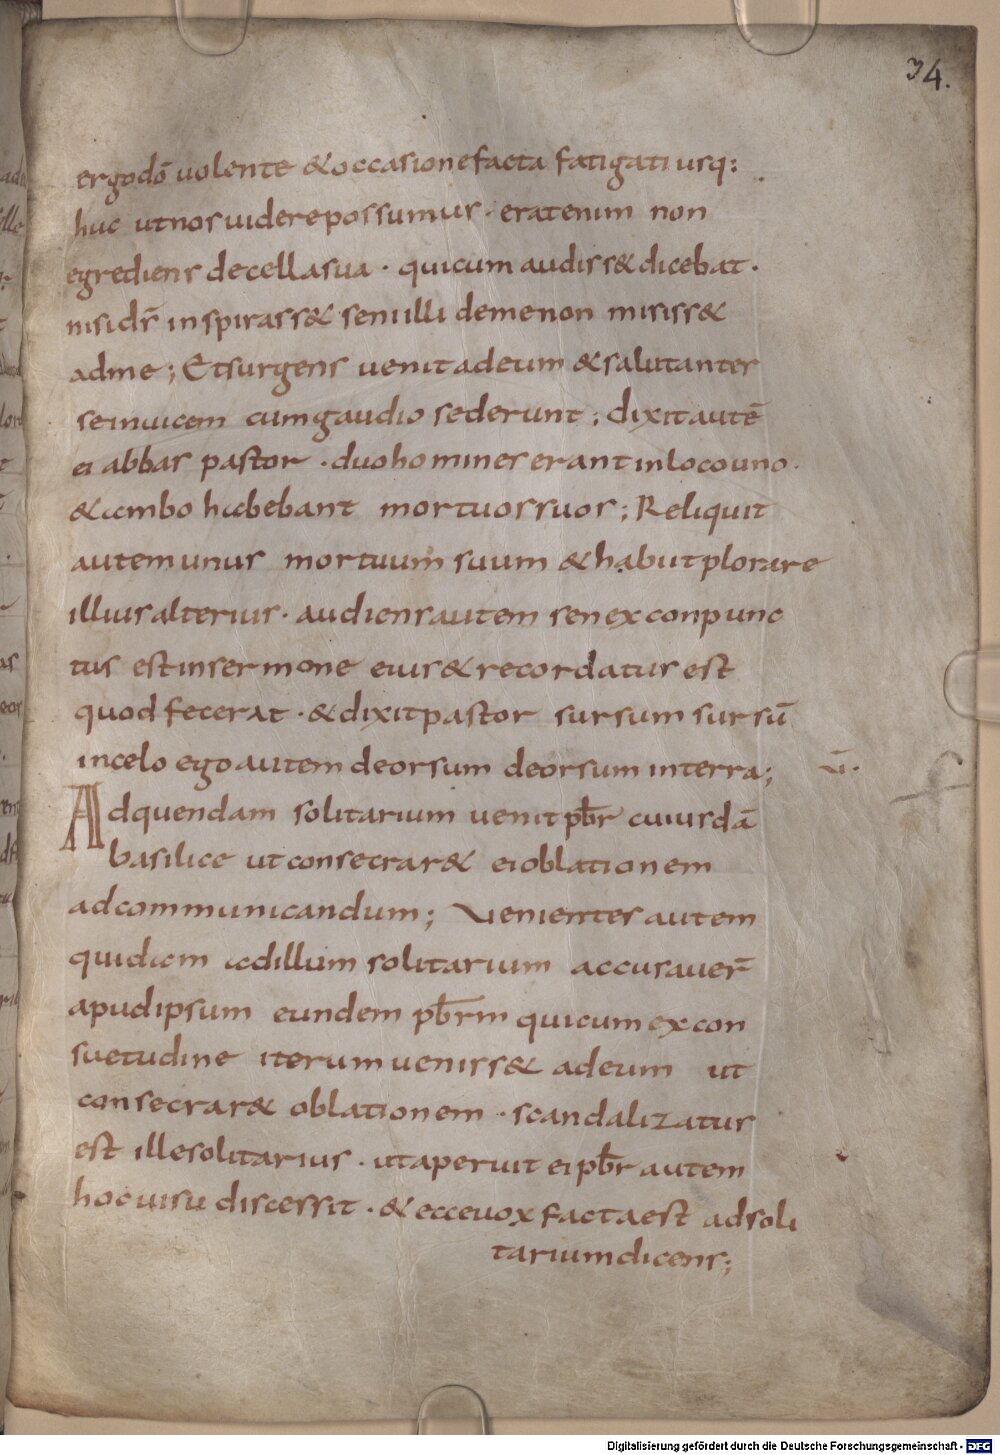 34.
ergo dō uolente & occasione facta fatigati usq:
huc ut nos uidere possumus · erat enim non
egrediens de cella sua · qui cum audiss& dicebat ·
nisi dſ̄ inspirass& seni illi de me non misiss&
ad me ; Et surgens uenit ad eum & salutanter
se inuicem cum gaudio sederunt ; dixit autē
ei abbas pastor · duo homines erant in loco uno ·
& ambo habebant mortuos suos ; Reliquit
autem unus mortuum suum & habiit plorare
illius alterius · audiens autem senex conpunc
tus est in sermone eius & recordatus est
quod fecerat · & dixit pastor sursum sursū
in celo ego autem deorsum deorsum in terra ;
Ad quendam solitarium uenit pb̄r cuiusdā
basilice ut consecrar& ei oblationem
ad communicandum ; Uenientes autem
quidam ad illum solitarium accusauer̄
apud ipsum eundem pb̄rm qui cum ex con
suetudine iterum ueniss& ad eum ut
consecrar& oblationem · scandalizatus
est ille solitarius · ut aperuit ei pb̄r autem
hoc uisu discessit · & ecce uox facta est ad soli
tarium dicens ;
Digitalisierung gefördert durch die Deutsche Forschungsgemeinschaft - DFG